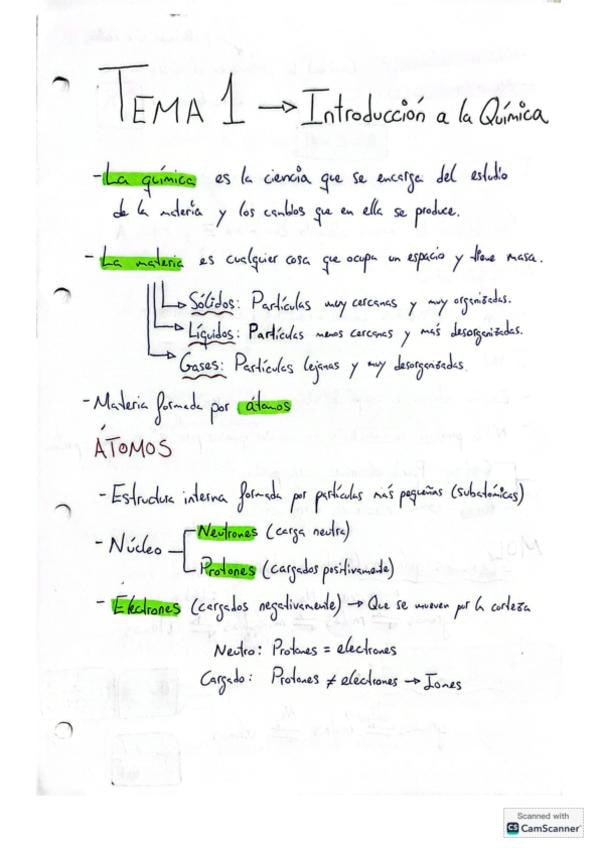 TEMA 1 → Introducción a la Química
- La química es la ciencia que se encarga del estudio
de la materia y los cambios que en ella se produce.
- La materia es cualquier cosa que ocupa un espacio y tiene masa.
→ Sólidos: Partículas muy cercanas y muy organizadas.
→ Líquidos: Partículas menos cercanas y más desorganizadas.
→ Gases: Partículas lejanas y muy desorganizadas.
- Materia formada por átomos
ÁTOMOS
- Estructura interna formada por partículas más pequeñas (subatómicas)
- Núcleo
Neutrones (carga neutra)
Protones (cargados positivamente)
- Electrones (cargados negativamente) → Que se mueven por la corteza
Neutro: Protones = electrones
Cargado: Protones ≠ electrones → Iones
Scanned with
CS CamScanner